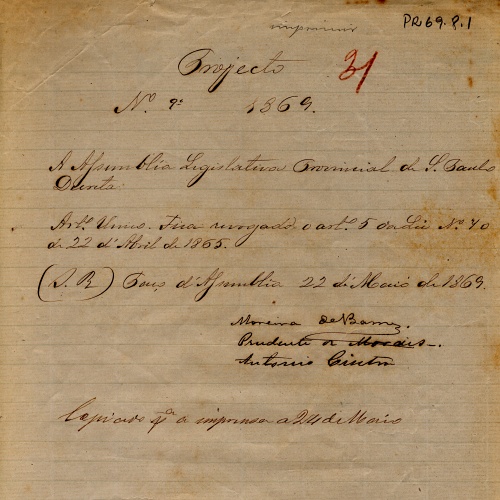 imprimir
PR69.P.1
Projecto
31
Nº 9. 1869.
A Assemblia Legislativa Provincial de S. Paulo
Decreta:
Artº Unico. Fica revogado o artº 5 da Lei Nº 40
de 22 d'Abril de 1865.
(S. R.) Paço d'Assemblia 22 de Maio de 1869.
Moreira de Barros.
Prudente de Moraes.
Antonio Cintra
Copiado pª a imprensa a 24 de Maio